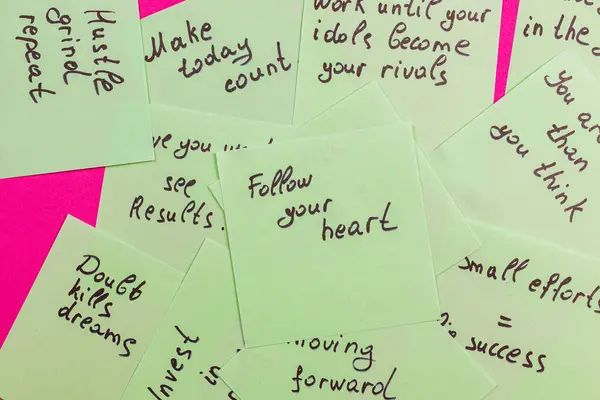 Hustle
grind
repeat
Make
today
count
work until your
idols become
your rivals
in the
You are
than
you think
see
Results.
Follow
your
heart
Doubt
kills
dreams
Invest
in
small efforts
=
success
moving
forward